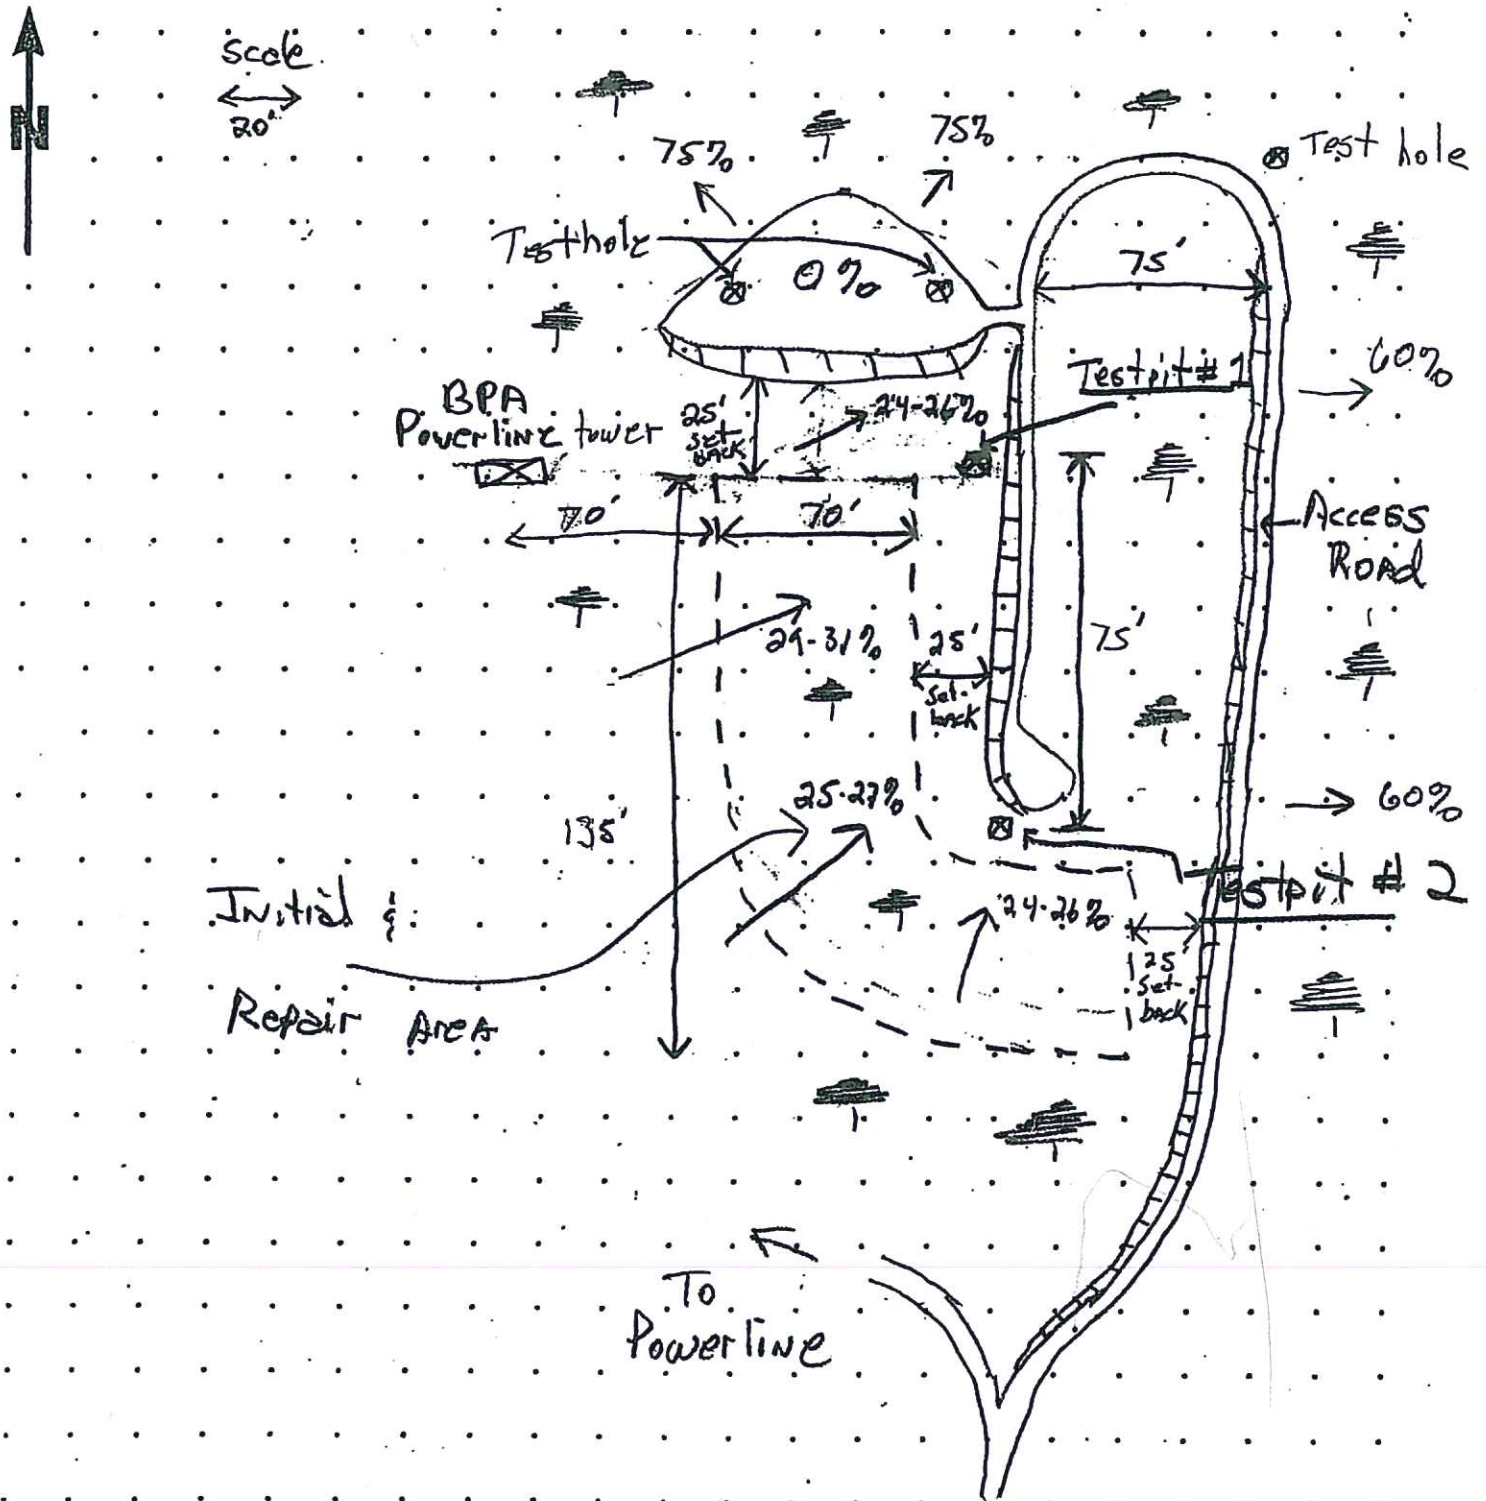 scale
20'
N
75%
75%
Test hole
Testhole
0%
75'
60%
Testpit #1
BPA
Powerline tower
25'
set
BACK
24-26%
70'
70'
Access
Road
29-31%
25'
Set-
back
75'
135'
25-27%
60%
Testpit # 2
Initial &
Repair Area
24-26%
25'
Set-
back
To
Powerline